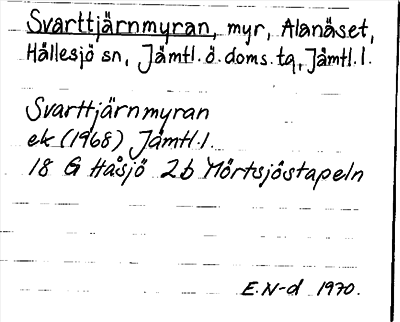 Svarttjärnmyran, myr, Alanäset,
Hällesjö sn, Jämtl. ö. doms. tq, Jämtl. l.
Svarttjärnmyran
ek (1968) Jämtl. l.
18 G Håsjö 2b Mörtsjöstapeln
E. N-d 1970.